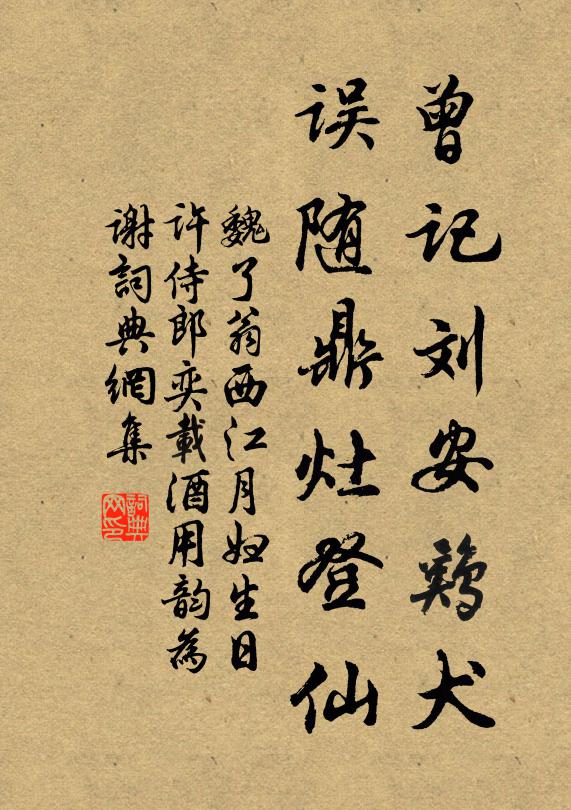 曾记刘安鸡犬
误随鼎灶登仙
魏了翁西江月妇生日
许侍郎奕載酒用韵為
谢詞典網集
詞典
网印